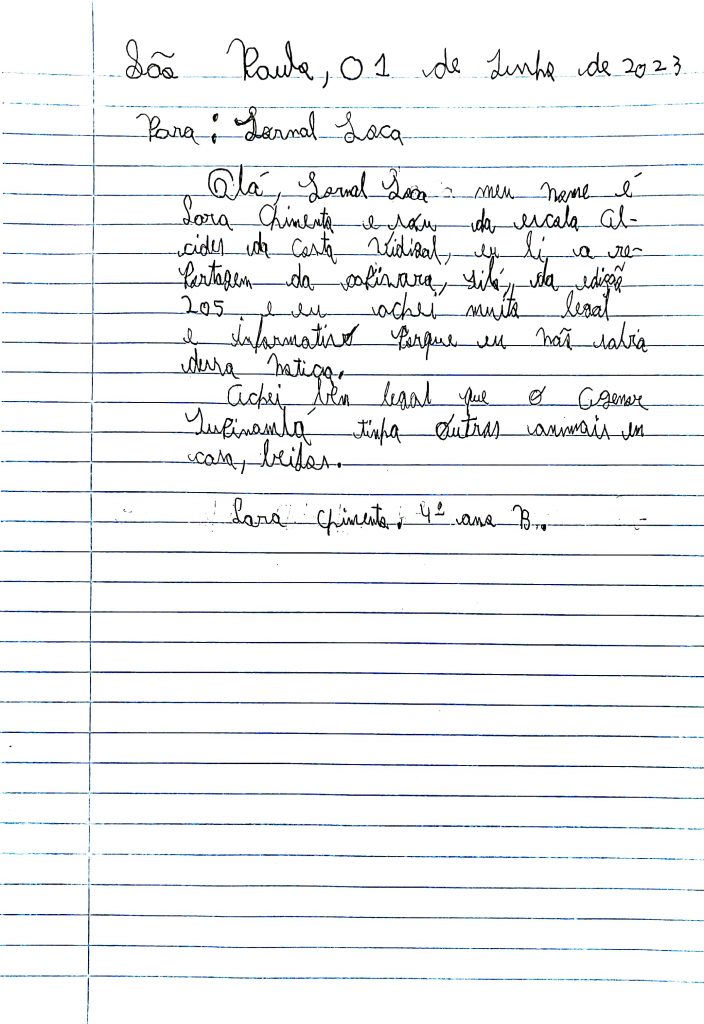 São Paulo, 01 de Junho de 2023
Para: Jornal Joca
Olá, Jornal Joca meu nome é
Lara Pimenta e sou da escola Al-
cides da Costa Vidigal, eu li a re-
portagem da capivara, Filó, da edição
205 e eu achei muito legal
e informativo porque eu não sabia
dessa notiça.
Achei bem legal que o Agenor
Tupinambá tinha outros animais em
casa, beijos.
Lara Pimenta. 4º ano B.